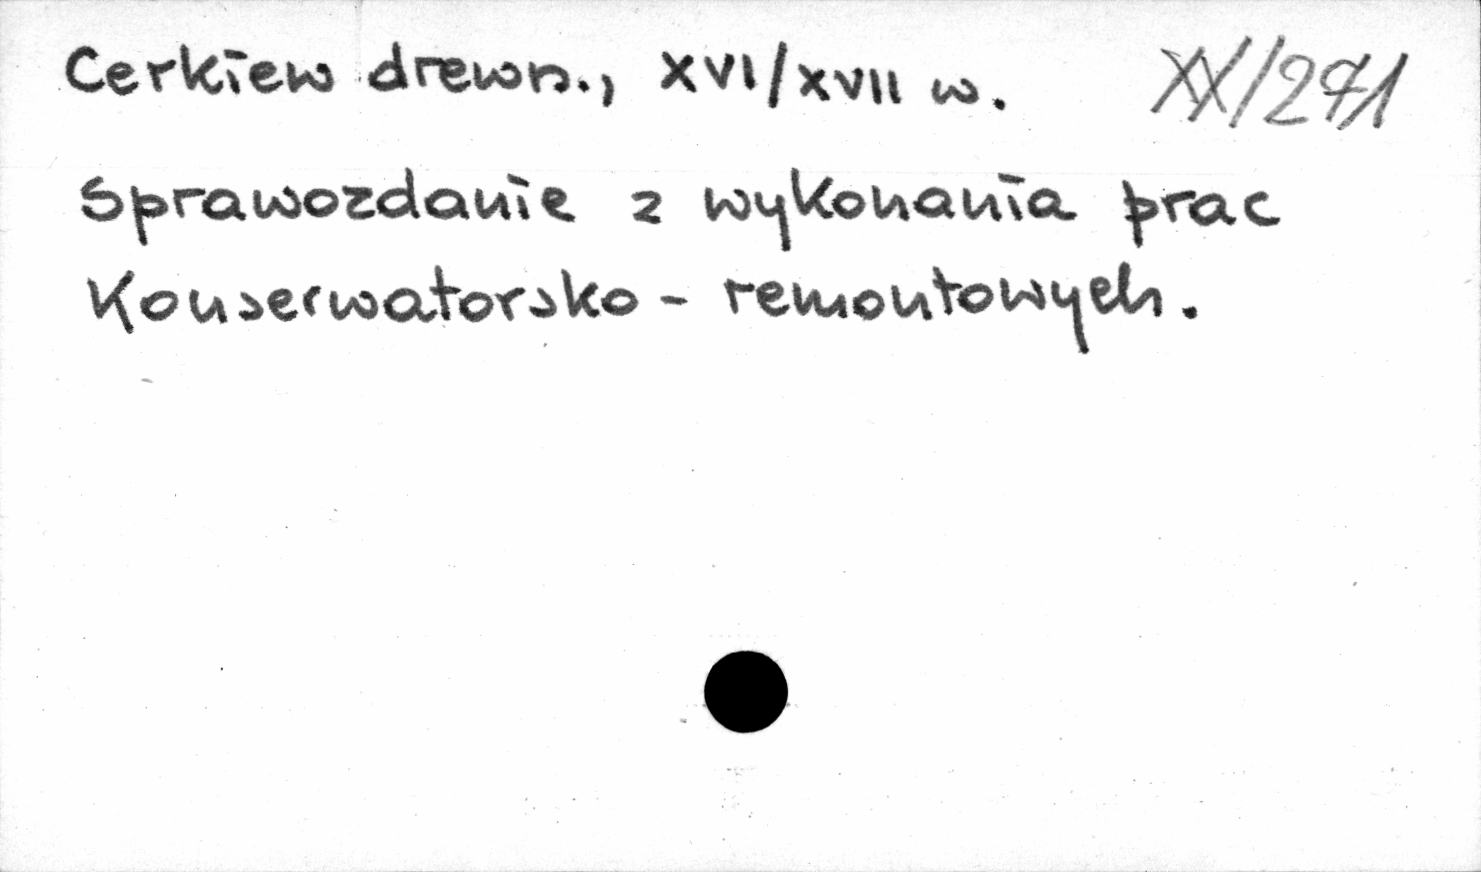 Cerkiew drewn., XVI/XVII w. XX/271
Sprawozdanie z wykonania prac
Konserwatorsko - remontowych.